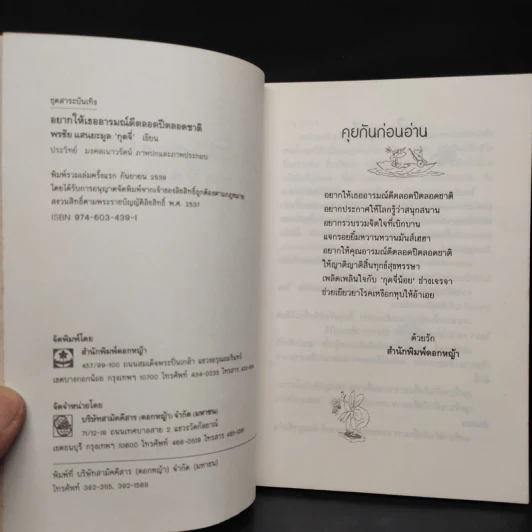 ชุดสาระบันเทิง
อยากให้เธออารมณ์ดีตลอดปีตลอดชาติ
พรชัย แสนยะมูล 'กุดจี่' เขียน
ประวิทย์ มงคลเนาวรัตน์ ภาพปกและภาพประกอบ
พิมพ์รวมเล่มครั้งแรก กันยายน 2538
โดยได้รับการอนุญาตจัดพิมพ์จากเจ้าของลิขสิทธิ์ถูกต้องตามกฎหมาย
สงวนลิขสิทธิ์ตามพระราชบัญญัติลิขสิทธิ์ พ.ศ. 2537
ISBN 974-603-439-1
จัดพิมพ์โดย
สำนักพิมพ์ดอกหญ้า
457/99-100 ถนนสมเด็จพระปิ่นเกล้า แขวงอรุณอมรินทร์
เขตบางกอกน้อย กรุงเทพฯ 10700 โทรศัพท์
จัดจำหน่ายโดย
บริษัทสามัคคีสาร (ดอกหญ้า) จำกัด (มหาชน)
71/12-19 ถนนเทศบาลสาย 2 แขวงวัดกัลยาณ์
เขตธนบุรี กรุงเทพฯ 10600 โทรศัพท์
พิมพ์ที่ บริษัทสามัคคีสาร (ดอกหญ้า) จำกัด (มหาชน)
โทรศัพท์ 392-365, 392-1569
คุยกันก่อนอ่าน
อยากให้เธออารมณ์ดีตลอดปีตลอดชาติ
อยากประกาศให้โลกรู้ว่าสนุกสนาน
อยากรวบรวมจิตใจที่เบิกบาน
แจกรอยยิ้มหวานหวานมันส์เฮฮา
อยากให้คุณอารมณ์ดีตลอดปีตลอดชาติ
ให้ญาติญาติสิ้นทุกข์สุขหรรษา
เพลิดเพลินใจกับ 'กุดจี่น้อย' ช่างเจรจา
ช่วยเยียวยาโรคเหงือกหุบให้อ้าเอย
ด้วยรัก
สำนักพิมพ์ดอกหญ้า